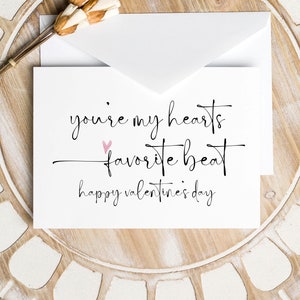 you're my hearts
favorite beat
happy valentine's day